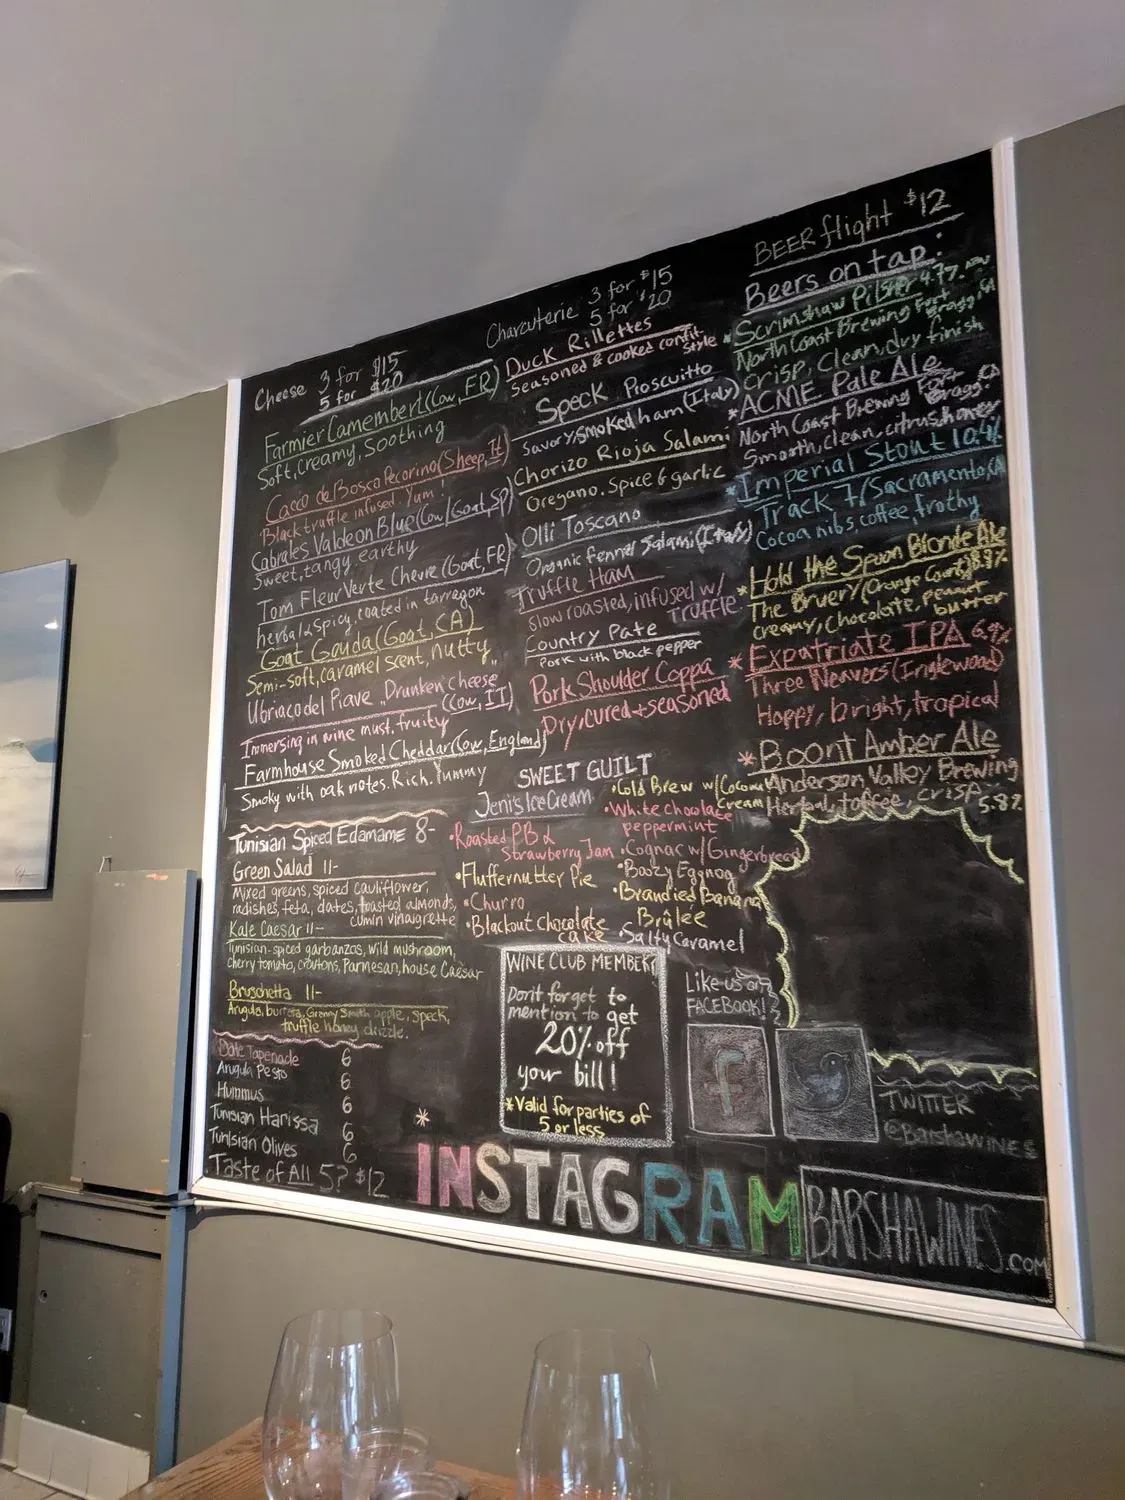 Cheese 3 for $15
5 for $20
Farmier Camembert (Cow, FR)
Soft, creamy, soothing
Caeco de Bosco Pecorino (Sheep, It)
Black truffle infused. Yum!
Cabrales Valdeon Blue (Cow/Goat, SP)
Sweet, tangy, earthy
Tom Fleur Verte Chevre (Goat, FR)
herbal & spicy, coated in tarragon
Goat Gouda (Goat, CA)
Semi-soft, caramel scent, nutty
Ubriaco del Piave "Drunken cheese
(Cow, IT)
Immersing in wine must. fruity
Farmhouse Smoked Cheddar (Cow, England)
Smoky with oak notes. Rich. Yummy
Tunisian Spiced Edamame 8-
Green Salad 11-
Mixed greens, spiced cauliflower,
radishes, feta, dates, toasted almonds,
cumin vinaigrette
Kale Caesar 11-
Tunisian-spiced garbanzos, wild mushroom,
cherry tomato, croutons, Parmesan, house Caesar
Bruschetta 11-
Arugula, burrata, Granny Smith apple, speck,
truffle honey drizzle.
Date Tapenade 6
Arugula Pesto 6
Hummus 6
Tunisian Harissa 6
Tunisian Olives 6
Taste of All 5? $12
Charcuterie 3 for $15
5 for $20
Duck Rillettes
Seasoned & cooked confit
style
Speck Proscuitto
Savory, smoked ham (Italy)
Chorizo Rioja Salami
Oregano, Spice & garlic
Olli Toscano
Organic Fennel Salami (Italy)
Truffle Ham
Slow roasted, infused w/
Truffle
Country Pate
Pork with black pepper
Pork Shoulder Coppa
Dry, cured + seasoned
SWEET GUILT
Jeni's Ice Cream
•Roasted PB &
Strawberry Jam
•Fluffernutter Pie
•Churro
•Blackout Chocolate
cake
•Cold Brew w/Coconut
Cream
•White Chocolate
peppermint
•Cognac w/Gingerbread
•Boozy Eggnog
•Brandied Banana
Brûlée
•Salty Caramel
WINE CLUB MEMBER
Don't forget to
mention to get
20% off
your bill!
*Valid for parties of
5 or less
BEER flight $12
Beers on tap:
*Scrimshaw Pilsner 4.7% ABV
North Coast Brewing Fort
Bragg, CA
Crisp, clean, dry finish
*ACME Pale Ale
North Coast Brewing Fort
Bragg, CA
Smooth, clean, citrus, honey
*Imperial Stout 10.4%
Track 7/Sacramento, CA
Cocoa nibs, coffee, frothy
*Hold the Spoon Blonde Ale
The Bruery (Orange County) 8.8%
creamy, chocolate, peanut
butter
*Expatriate IPA 6.9%
Three Weavers (Inglewood)
Hoppy, bright, tropical
*Boont Amber Ale
Anderson Valley Brewing
Herbal, toffee, crisp 5.8%
Like us on
FACEBOOK!
f
TWITTER
@BarshaWINES
*
INSTAGRAM
BARSHAWINES.COM